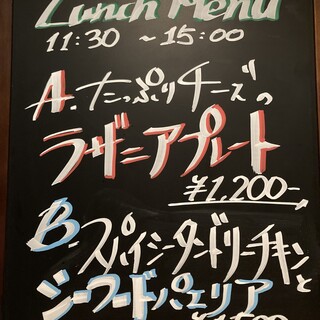 Lunch Menu
11:30 ~15:00
A. たっぷりチーズの
ラザニアプレート
¥1,200-
B. スパイシータンドリーチキンと
シーフードパエリア